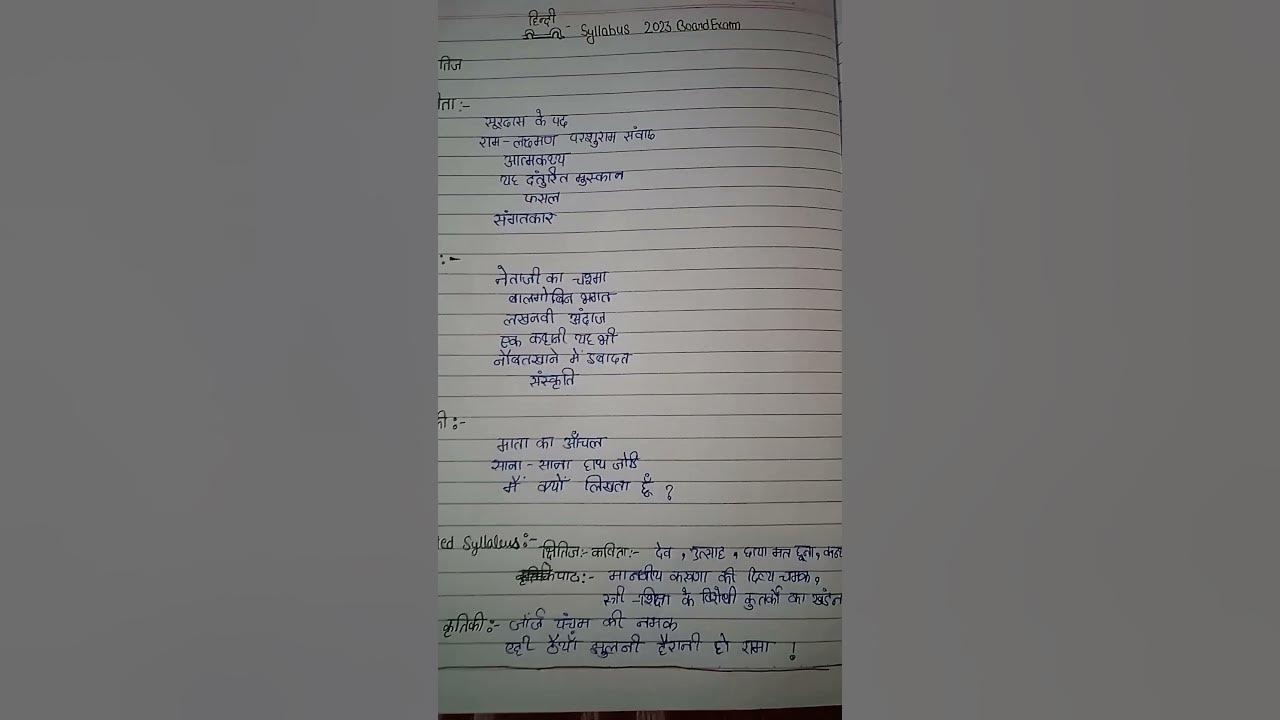 हिन्दी - Syllabus 2023 Board Exam
तिज
ता:-
सूरदास के पद
राम-लक्ष्मण परशुराम संवाद
आत्मकथ्य
यह दंतुरित मुस्कान
फसल
संगतकार
:-
नेताजी का चश्मा
बालगोबिन भगत
लखनवी अंदाज
एक कहानी यह भी
नौबतखाने में इबादत
संस्कृति
ी:-
माता का आँचल
साना-साना हाथ जोड़ि
मैं क्यों लिखता हूँ ?
ted Syllabus:- क्षितिज:- कविता:- देव, उत्साह, छाया मत छूना, कन्य
पाठ:- मानवीय करुणा की दिव्य चमक,
स्त्री-शिक्षा के विरोधी कुतर्कों का खंडन
कृतिकी:- जॉर्ज पंचम की नमक
एही ठैयाँ झुलनी हैरानी हो रामा !